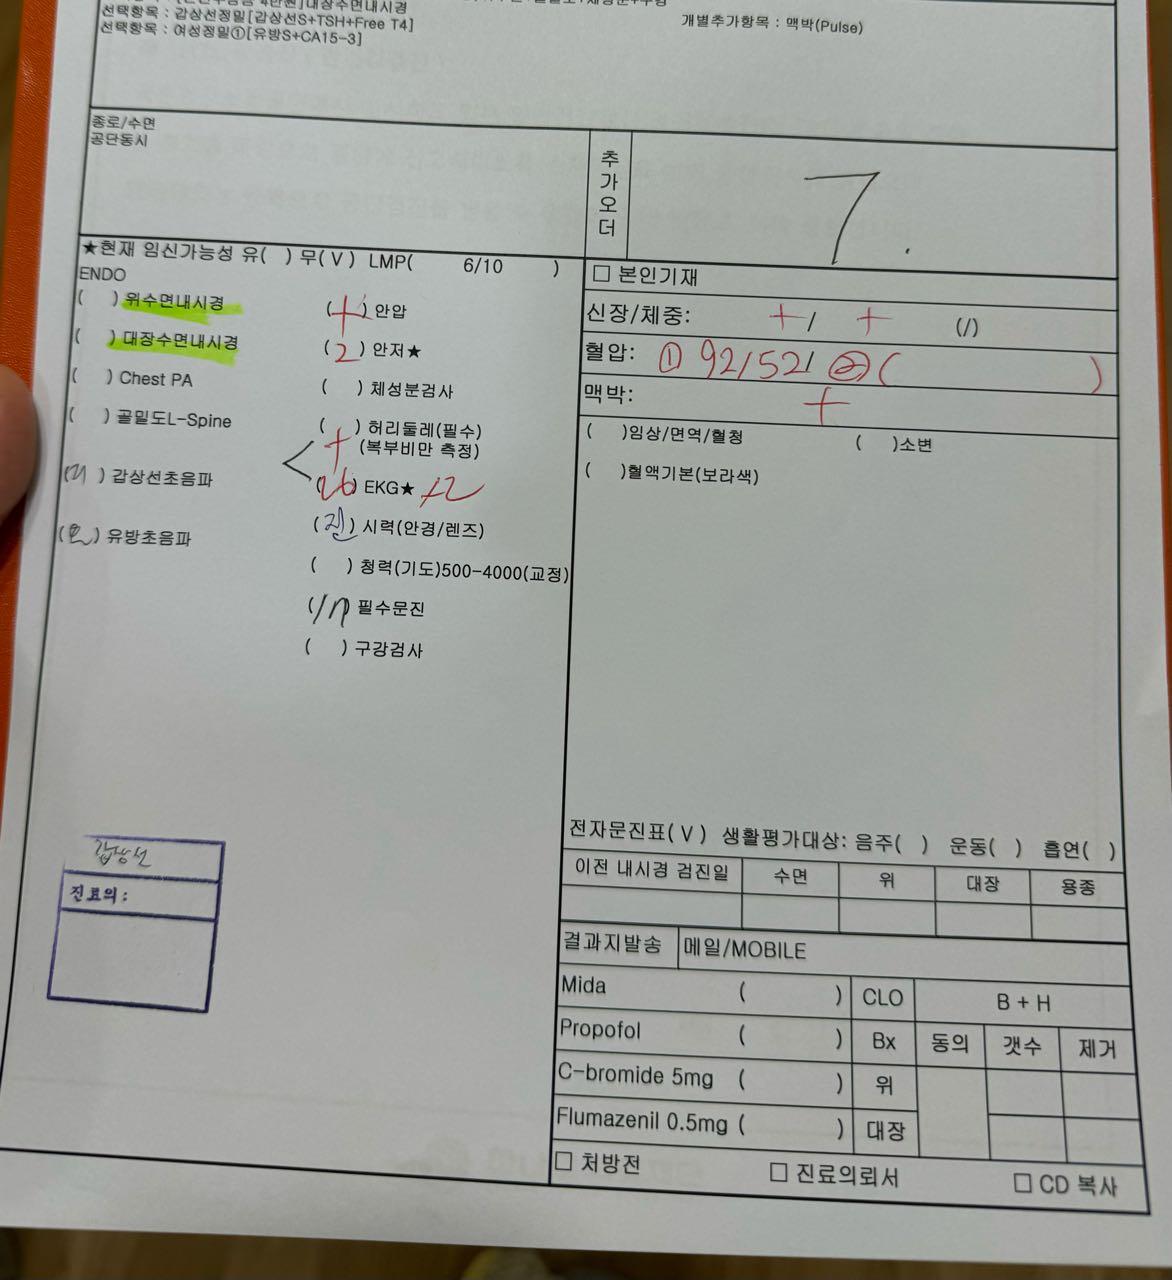 대장수면내시경
선택항목 : 갑상선정밀[갑상선S+TSH+Free T4]
선택항목 : 여성정밀①[유방S+CA15-3]
개별추가항목 : 맥박(Pulse)
종로/수면
공단동시
추가오더
7.
★현재 임신가능성 유( ) 무(V) LMP( 6/10 )
ENDO
( ) 위수면내시경
( ) 대장수면내시경
( ) Chest PA
( ) 골밀도L-Spine
( ) 갑상선초음파
( ) 유방초음파
(+) 안압
(2) 안저★
( ) 체성분검사
( ) 허리둘레(필수)
+ (복부비만 측정)
(26) EKG★ +2
( ) 시력(안경/렌즈)
( ) 청력(기도)500-4000(교정)
( ) 필수문진
( ) 구강검사
□ 본인기재
신장/체중: + / + (/)
혈압: ① 92/52/ ② ( )
맥박: +
( )임상/면역/혈청 ( )소변
( )혈액기본(보라색)
갑상선
진료의:
전자문진표(V) 생활평가대상: 음주( ) 운동( ) 흡연( )
이전 내시경 검진일 수면 위 대장 용종
결과지발송 메일/MOBILE
Mida ( ) CLO B + H
Propofol ( ) Bx 동의 갯수 제거
C-bromide 5mg ( ) 위
Flumazenil 0.5mg ( ) 대장
□ 처방전 □ 진료의뢰서 □ CD 복사